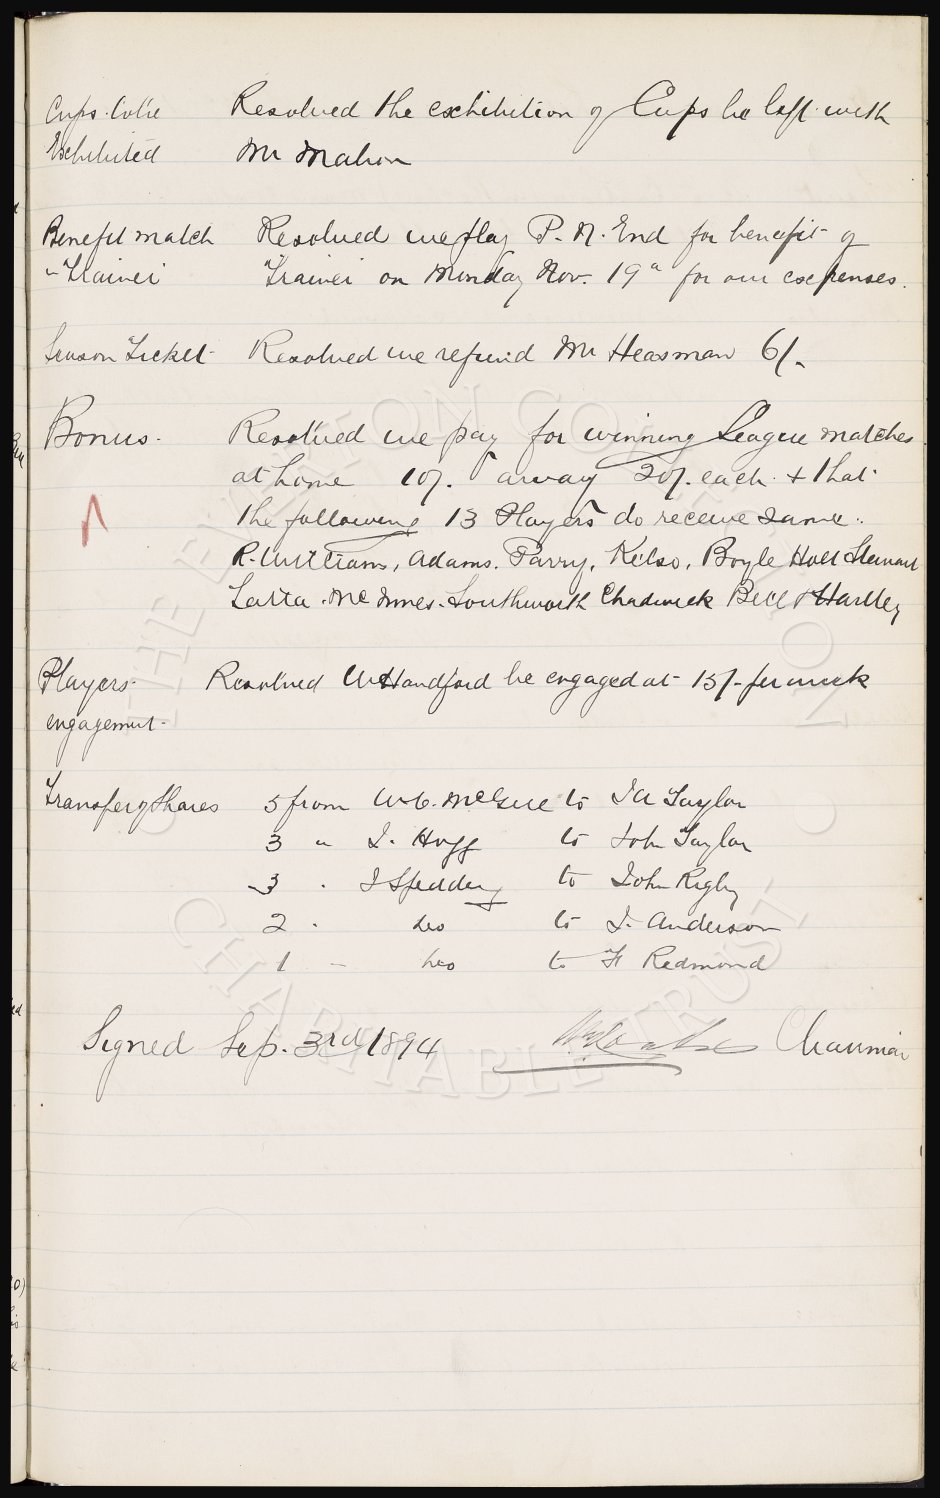 Cups to be Resolved the exhibition of Cups be left with
Exhibited Mr Mahon
Benefit match Resolved we play P. N. End for benefit of
" Trainer Trainer on Monday Nov. 19" for our expenses.
Season Ticket Resolved we refund Mr Heasman 6/-
Bonus. Resolved we pay for winning League matches
at home 10/. away 20/. each. & that
the following 13 Players do receive same.
R. Williams, Adams. Parry, Kelso, Boyle Holt Stewart
Latta. McInnes. Southworth Chadwick Bell & Hartley
Players Resolved W Handford be engaged at 15/- per week
engagement.
Transfer of Shares 5 from to J W Taylor
3 " J. Hogg to John Taylor
3 . J Spedding to John Rigby
2 . do to J. Anderson
1 - do to Redmond
Signed Sep. 3rd 1894 Chairman
THE EVERTON COLLECTION
CHARITABLE TRUST